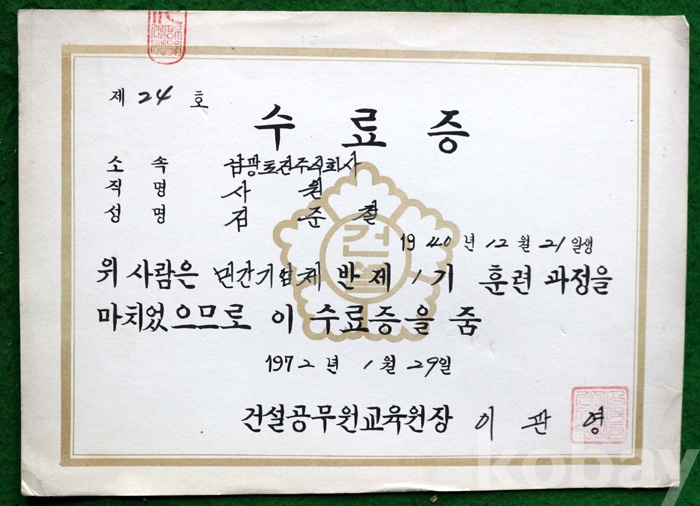 제 24 호
수료증
소 속 남광토건주식회사
직 명 사 원
성 명 김 준 철
1940년 12월 21일생
건설
위 사람은 민간기업체 반 제 1기 훈련 과정을
마치었으므로 이 수료증을 줌
1972년 1월 29일
건설공무원교육원장 이 관 영
kobay